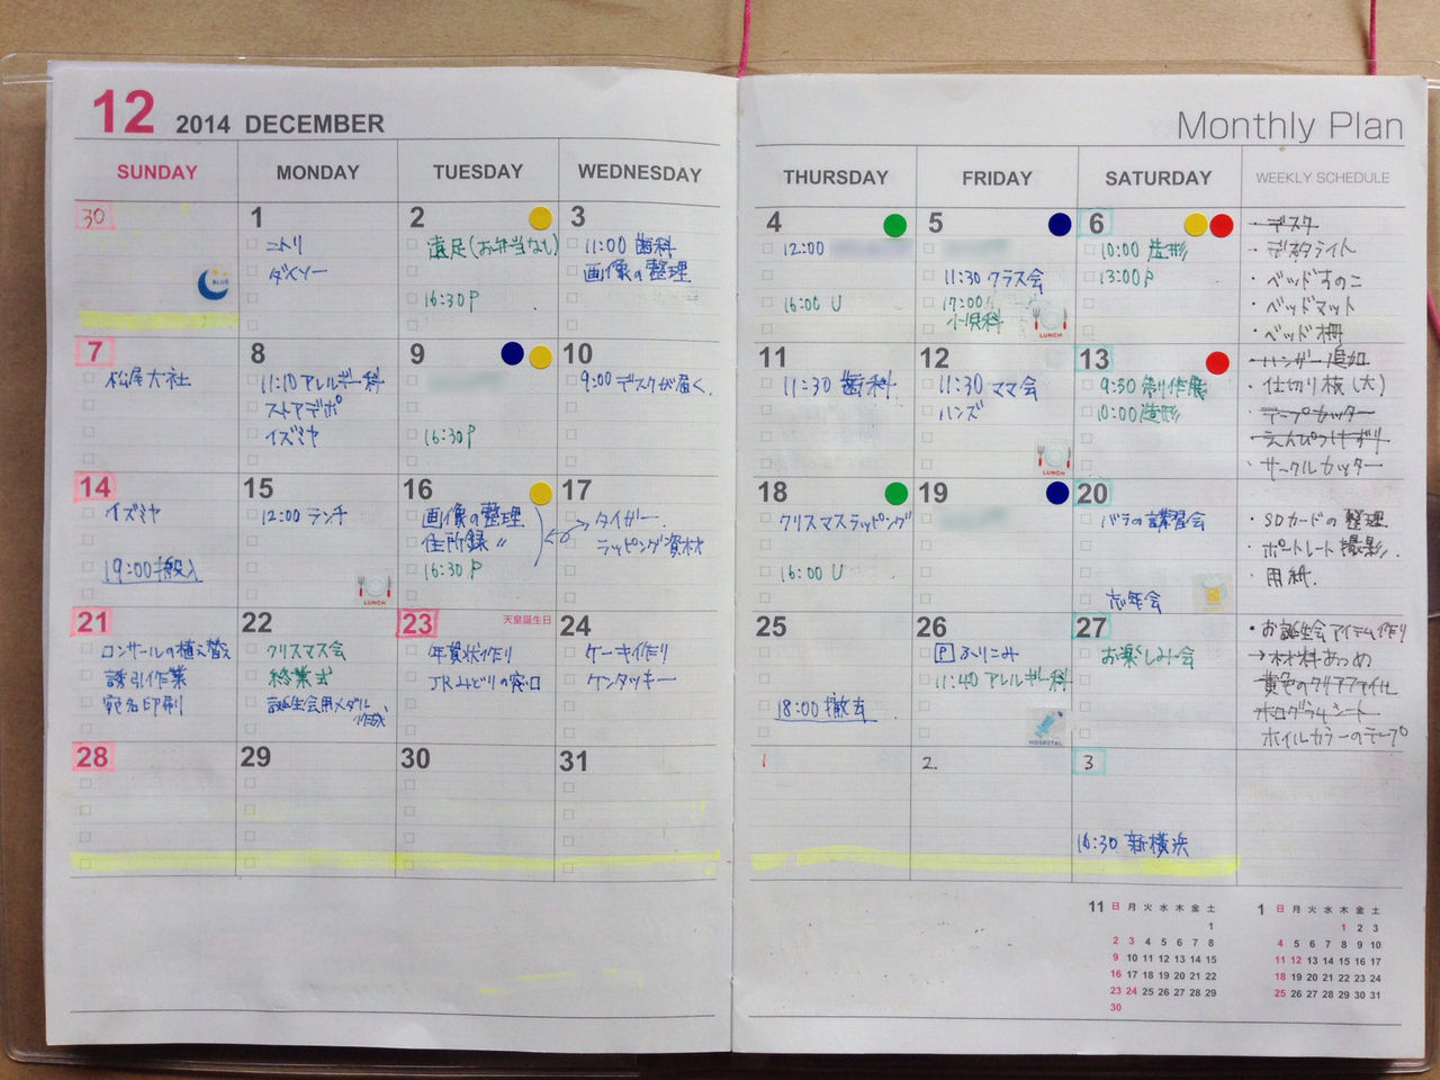 12 2014 DECEMBER
Monthly Plan
SUNDAY MONDAY TUESDAY WEDNESDAY THURSDAY FRIDAY SATURDAY WEEKLY SCHEDULE
30
1
ニトリ
ダイソー
2
遠足(お弁当なし)
16:30 P
3
11:00 歯科
画像の整理
4
12:00
16:00 U
5
11:30 クラス会
17:00
小児科
LUNCH
6
10:00 造形
13:00 P
・デスク
・デスクライト
・ベッドすのこ
・ベッドマット
・ベッド柵
7
松尾大社
8
11:10 アレルギー科
ストアデポ
イズミヤ
9
16:30 P
10
9:00 デスクが届く.
11
11:30 歯科
12
11:30 ママ会
ハンズ
LUNCH
13
9:30 創作展
10:00 造形
・ハンガー追加
・仕切り板(大)
・テープカッター
・えんぴつけずり
・サークルカッター
14
イズミヤ
19:00 搬入
15
12:00 ランチ
LUNCH
16
画像の整理
住所録 〃
16:30 P
17
タイガー
ラッピング資材
18
クリスマスラッピング
16:00 U
19
20
バラの講習会
忘年会
・SDカードの整理
・ポートレート撮影
・用紙.
21
コンサールの植え替え
誘引作業
宛名印刷
22
クリスマス会
終業式
誕生会用メダル
作成
23 天皇誕生日
年賀状作り
JRみどりの窓口
24
ケーキ作り
ケンタッキー
25
18:00 撤去
26
P ふりこみ
11:40 アレルギー科
HOSPITAL
27
お楽しみ会
・お誕生会アイテム作り
→材料あつめ
黄色のクリアファイル
ホログラムシート
ホイルカラーのテープ
28
29
30
31
1
2
3
16:30 新横浜
11 日 月 火 水 木 金 土
1
2 3 4 5 6 7 8
9 10 11 12 13 14 15
16 17 18 19 20 21 22
23 24 25 26 27 28 29
30
1 日 月 火 水 木 金 土
1 2 3
4 5 6 7 8 9 10
11 12 13 14 15 16 17
18 19 20 21 22 23 24
25 26 27 28 29 30 31